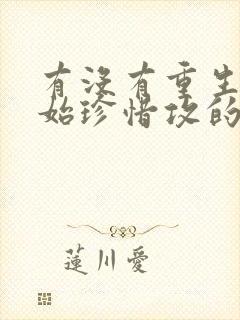 有没有重生
始珍惜攻的
蓮川愛